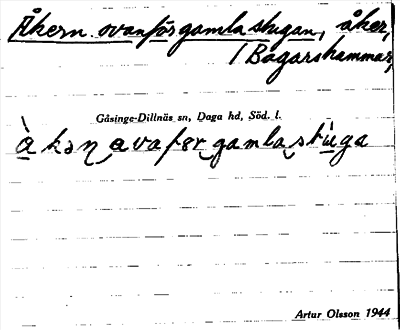 Åkern ovanför gamla stugan, åker,
1 Bagarshammar,
Gåsinge-Dillnäs sn, Daga hd, Söd. l.
å̀kən avafør gamla stùga
Artur Olsson 1944